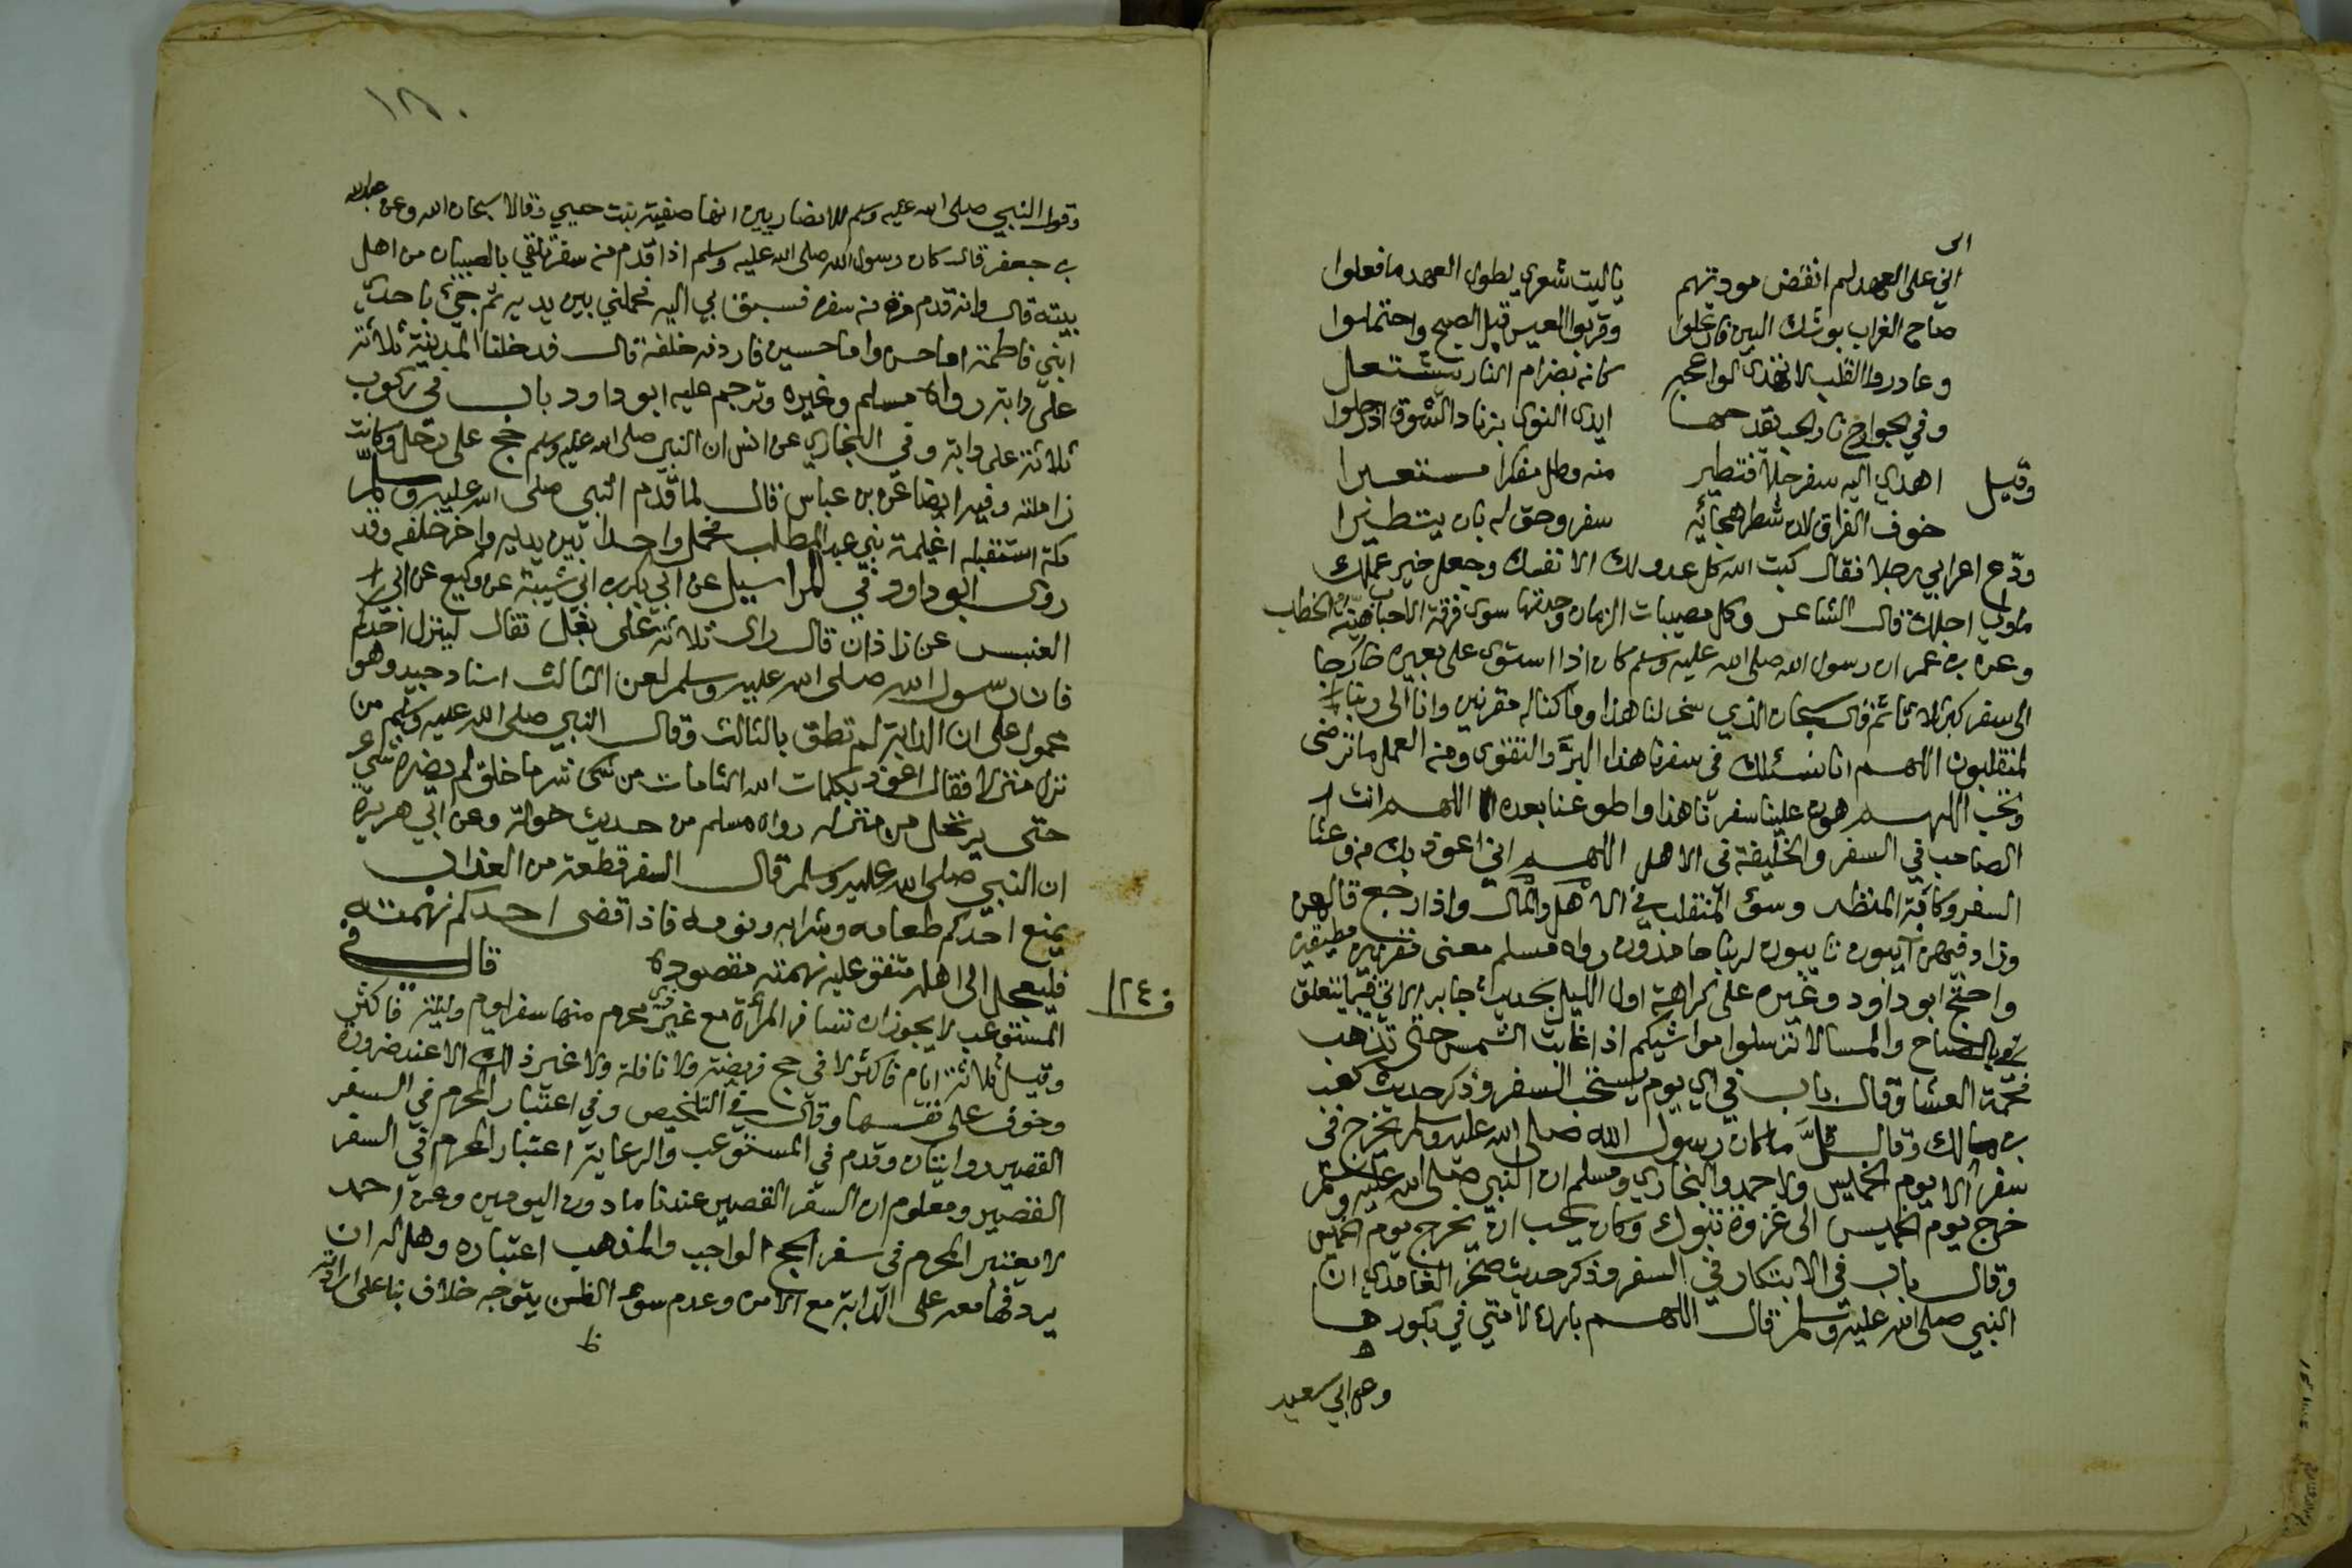 الى
اني على العهد لم انقض مودتهم ياليت شعري لطول العهد ما فعلوا
صاح الغراب بوشك البين فارتحلوا وقربوا العيس قبل الصبح واحتملوا
وغادروا القلب لا تهدى لواعجه كانه بضرام النار يشتعل
وفي الجوانح نار الحب تقدحها ايدي النوى بزناد الشوق اذ رحلوا
وقيل اهدي اليه سفرجلا فتطير منه وظل مفكرا مستعبرا
خوف الفراق لان شطر هجائه سفر وحق له بان يتطيرا
ودّع اعرابي رجلا فقال كبت الله كل عدو لك الا نفسك وجعل خير عملك
ما ولي اجلك قال الشاعر وكل مصيبات الزمان وجدتها سوى فرقة الاحباب هينة الخطب
وعن بن عمر ان رسول الله صلى الله عليه وسلم كان اذا استوى على بعيره خارجا
الى سفر كبر ثلاثا ثم قال سبحان الذي سخر لنا هذا وما كنا له مقرنين وانا الى ربنا
لمنقلبون اللهم انا نسئلك في سفرنا هذا البرّ والتقوى ومن العمل ما ترضى
وتحب اللهم هون علينا سفرنا هذا واطو عنا بعده اللهم انت
الصاحب في السفر والخليفة في الاهل اللهم اني اعوذ بك من وعثا
السفر وكابة المنظر وسوء المنقلب في الاهل والمال واذا رجع قالهن
وزاد فيهن آيبون تايبون لربنا حامدون رواه مسلم معنى مقرنين مطيقين
واحتج ابو داود وغيره على كراهة اول الليل بحديث جابر الاتي فيما يتعلق
بالصباح والمسا لا ترسلوا مواشيكم اذا غابت الشمس حتى تذهب
فحمة العشا وقال باب في اي يوم يستحب السفر وذكر حديث كعب
بن مالك وقال قلَّ ما كان رسول الله صلى الله عليه وسلم يخرج في
سفر الا يوم الخميس ولاحمد والبخاري ومسلم ان النبي صلى الله عليه وسلم
خرج يوم الخميس الى غزوة تبوك وكان يحب ان يخرج يوم الخميس
وقال باب في الابتكار في السفر وذكر حديث صخر الغامدي ان
النبي صلى الله عليه وسلم قال اللهم بارك لامتي في بكورها
وعن ابي سعيد
١٢٥
وقول النبي صلى الله عليه وسلم للانصاريين انها صفية بنت حيي وقالا سبحان الله وعن عبد الله
بن جعفر قال كان رسول الله صلى الله عليه وسلم اذا قدم من سفر تلقي بالصبيان من اهل
بيته قال وانه قدم مرة من سفره فسبق بي اليه فحملني بين يديه ثم جيء باحدى
ابني فاطمة اما حسن واما حسين فاردفه خلفه قال فدخلنا المدينة ثلاثة
على دابة رواه مسلم وغيره وترجم عليه ابو داود باب في ركوب
ثلاثة على دابة وفي البخاري عن انس ان النبي صلى الله عليه وسلم حج على رحل وكانت
زاملته وفيه ايضا عن بن عباس قال لما قدم النبي صلى الله عليه وسلم
مكة استقبله اغيلمة بني عبد المطلب فحمل واحدا بين يديه واخر خلفه وقد
روى ابو داود في المراسيل عن ابي بكر بن ابي شيبة عن وكيع عن ابي
العنبس عن زاذان قال راى ثلاثة على بغل فقال لينزل احدكم
فان رسول الله صلى الله عليه وسلم لعن الثالث اسناد جيد وهو
محمول على ان الدابة لم تطق بالثالث وقال النبي صلى الله عليه وسلم من
نزل منزلا فقال اعوذ بكلمات الله التامات من شر ما خلق لم يضره شي
حتى يرتحل من منزله رواه مسلم من حديث خولة وعن ابي هريرة
ان النبي صلى الله عليه وسلم قال السفر قطعة من العذاب
يمنع احدكم طعامه وشرابه ونومه فاذا قضى احدكم نهمته
فليعجل الى اهله متفق عليه نهمته مقصوده قال في
ف ١٢٤
المستوعب لا يجوز ان تسافر المرأة مع غير ذي محرم منها سفر يوم وليلة فاكثر
وقيل ثلاثة ايام فاكثر لا في حج فريضة ولا نافلة ولا غير ذلك الا عند ضرورة
وخوف على نفسها وقال في التلخيص وفي اعتبار المحرم في السفر
القصير روايتان وقدم في المستوعب والرعاية اعتبار المحرم في السفر
القصير ومعلوم ان السفر القصير عندنا ما دون اليومين وعن احمد
لا يعتبر المحرم في سفر الحج الواجب والمذهب اعتباره وهل له ان
يردفها معه على الدابة مع الامن وعدم سوء الظن يتوجه خلاف بنا على ارادته